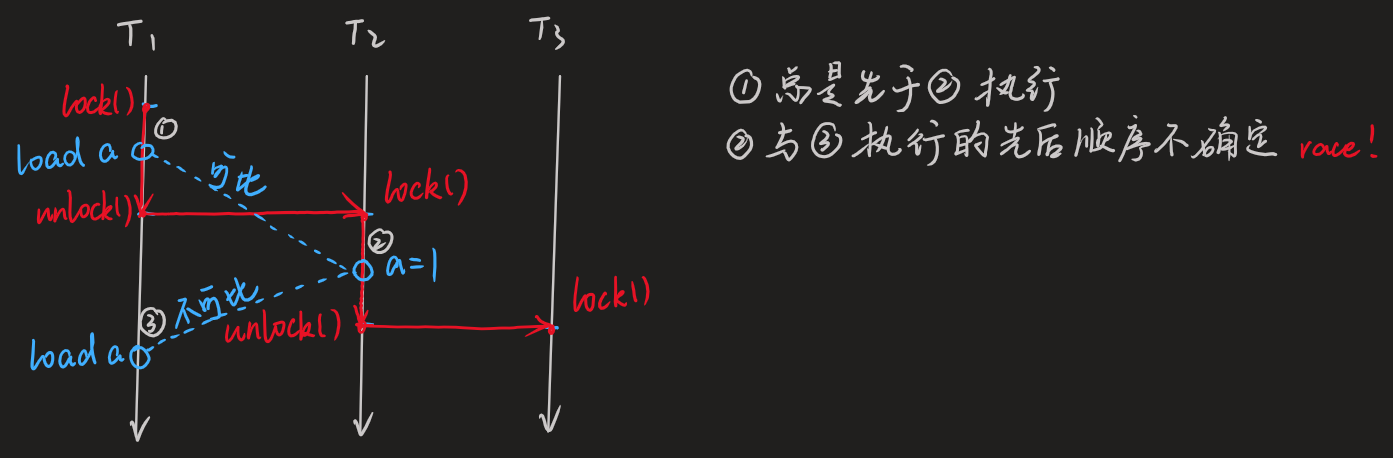 T1 T2 T3
lock()
①
load a
可比
unlock()
lock()
②
a=1
不可比
③
load a
unlock()
lock()
①总是先于②执行
②与③执行的先后顺序不确定 race!